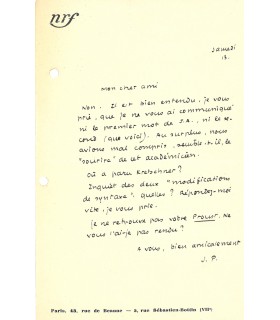 nrf
samedi
13.
mon cher ami
Non. Il est bien entendu, je vous
prie, que je ne vous ai communiqué
ni le premier mot de S.A., ni le se-
cond (que voici). Au surplus, nous
avions mal compris, semble-t-il, le
"sourire" de cet académicien.
Où a paru Kretschner?
Inquiet des deux "modifications
de syntaxe". quelles? Répondez-moi
vite, je vous prie.
je ne retrouve pas votre Proust. Ne
vous l'ai-je pas rendu?
A vous, bien amicalement
J. P.
Paris, 43, rue de Beaune — 5, rue Sébastien-Bottin (VIIe)